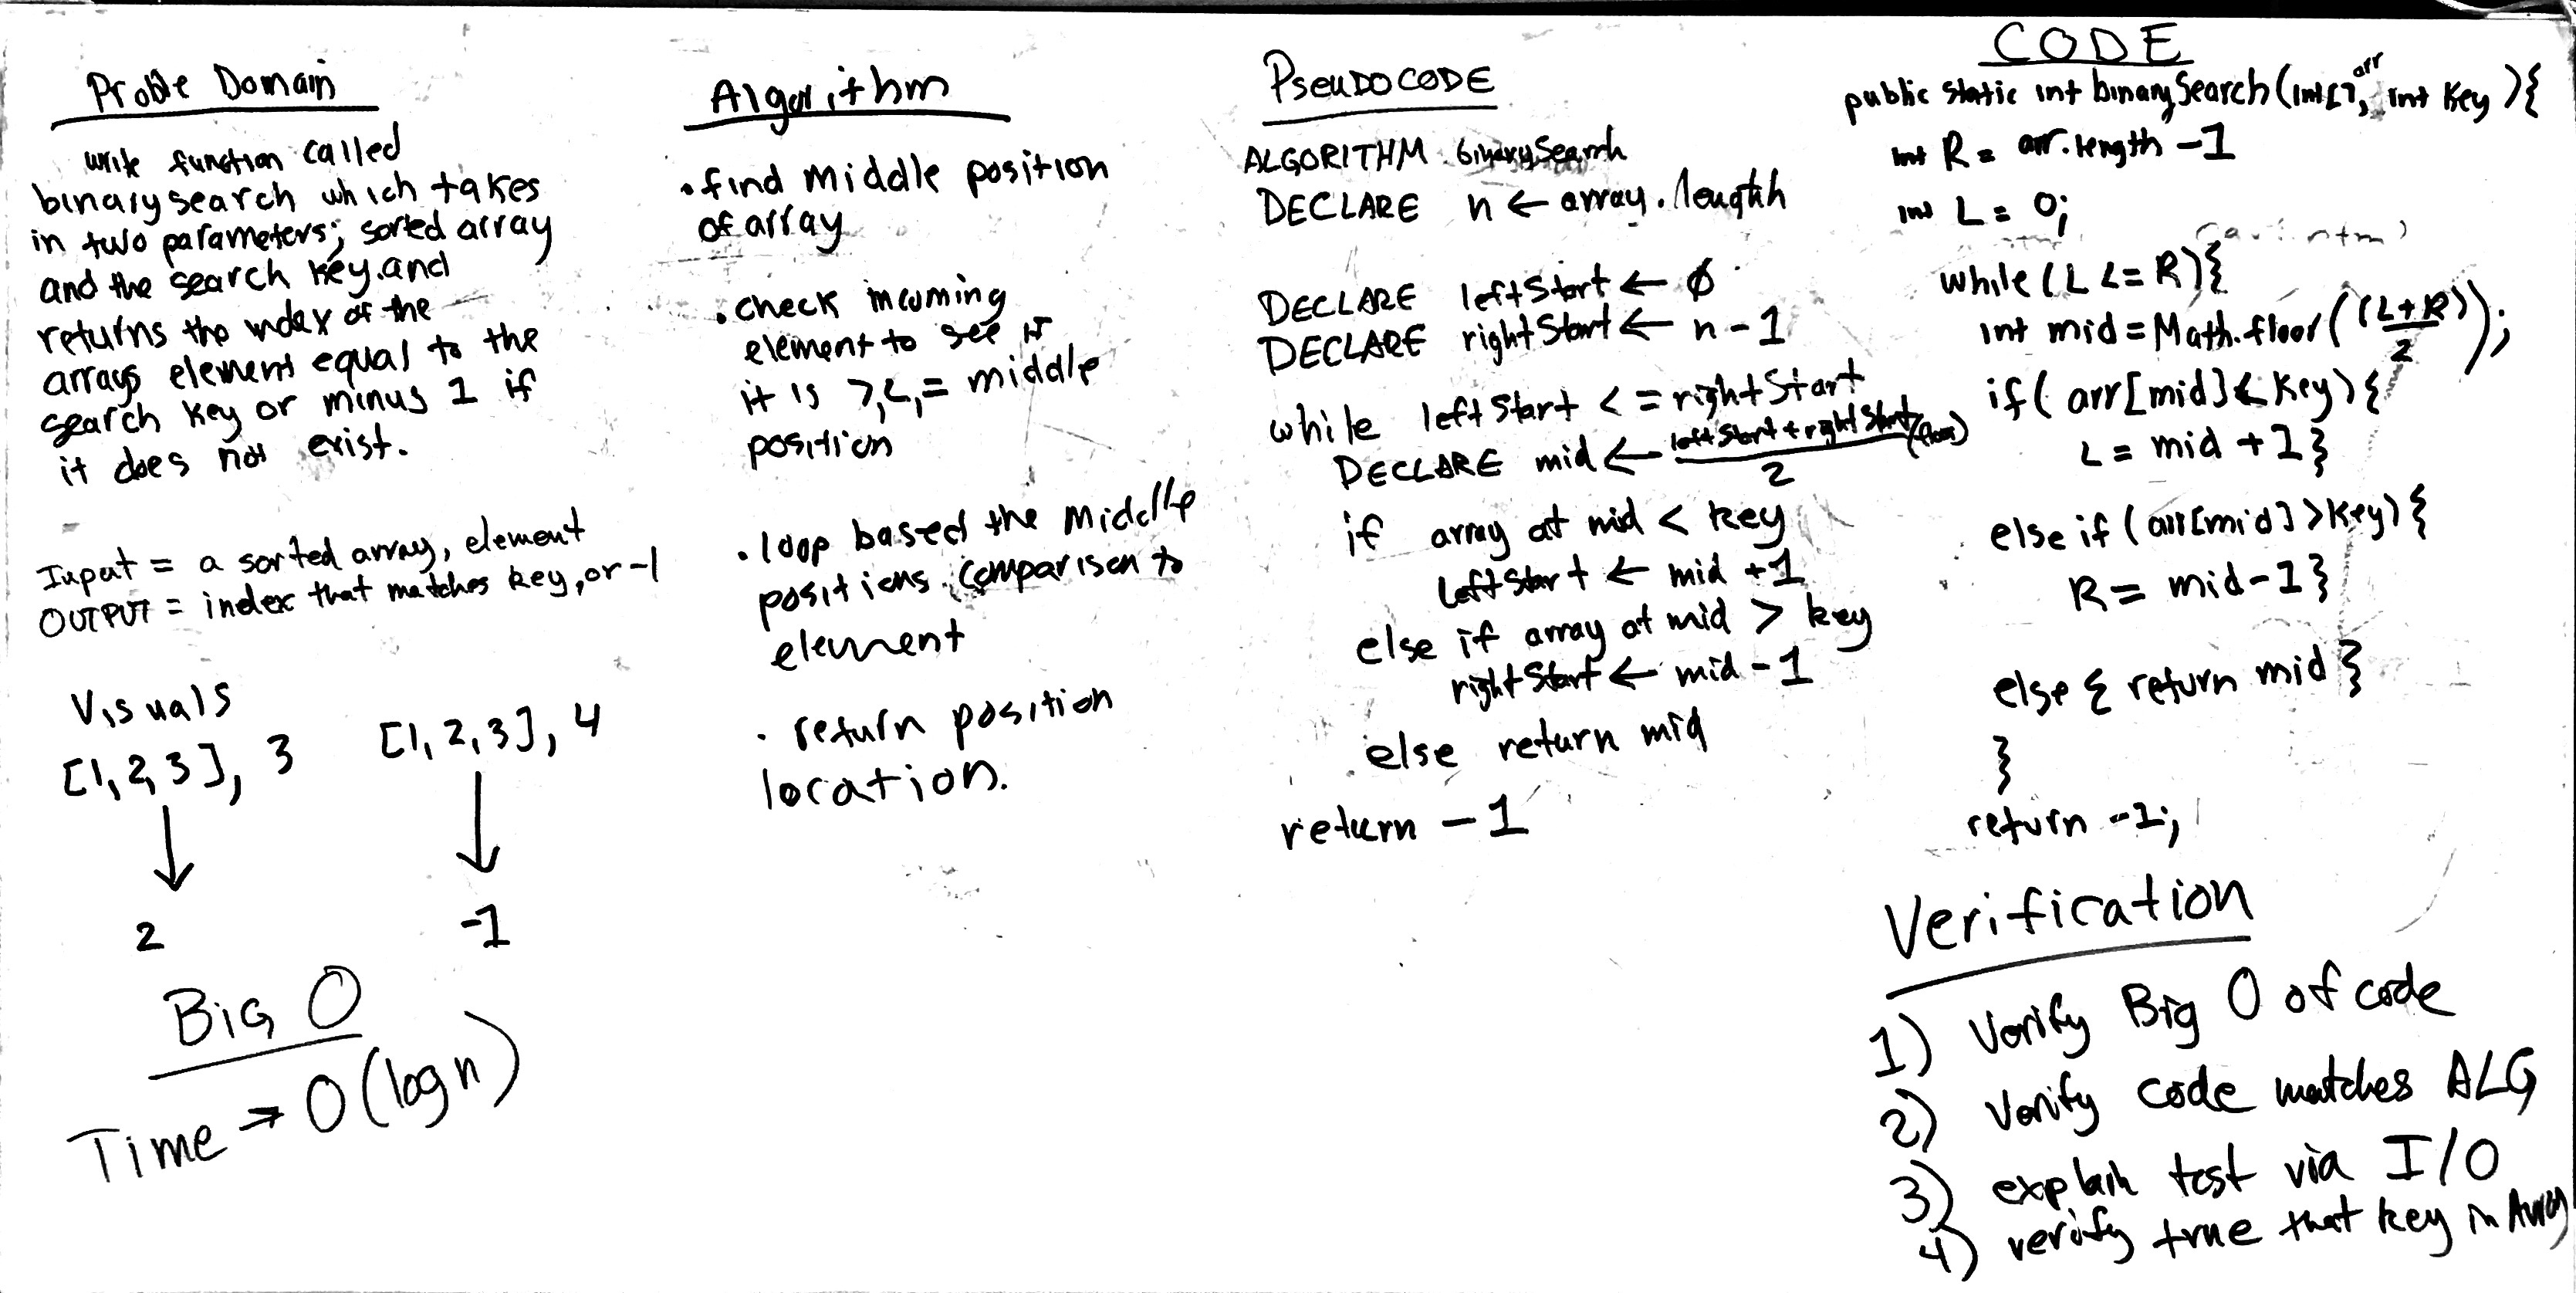 Proble Domain
write function called
binarysearch which takes
in two parameters; sorted array
and the search key. and
returns the index of the
arrays element equal to the
search key or minus 1 if
it does not exist.
Input = a sorted array, element
OUTPUT = index that matches key, or -1
Visuals
[1,2,3], 3
[1,2,3], 4
2
-1
Big O
Time → O(log n)
Algorithm
• find middle position
of array
• check incoming
element to see if
it is >,<,= middle
position
• loop based the middle
positions comparison to
element
• return position
location.
PSEUDOCODE
ALGORITHM binarySearch
DECLARE n ← array.length
DECLARE leftStart ← 0
DECLARE rightStart ← n - 1
while leftStart <= rightStart
DECLARE mid ← leftStart + rightStart / 2 (floor)
if array at mid < key
leftStart ← mid + 1
else if array at mid > key
rightStart ← mid - 1
else return mid
return -1
CODE
public static int binarySearch(int[] arr, int key){
int R = arr.length - 1
int L = 0;
while (L <= R){
int mid = Math.floor((L+R)/2);
if( arr[mid] < key){
L = mid + 1}
else if (arr[mid] > key){
R = mid-1}
else { return mid }
}
return -1;
Verification
1) Verify Big O of code
2) Verify code matches ALG
3) explain test via I/O
4) verify true that key in Array